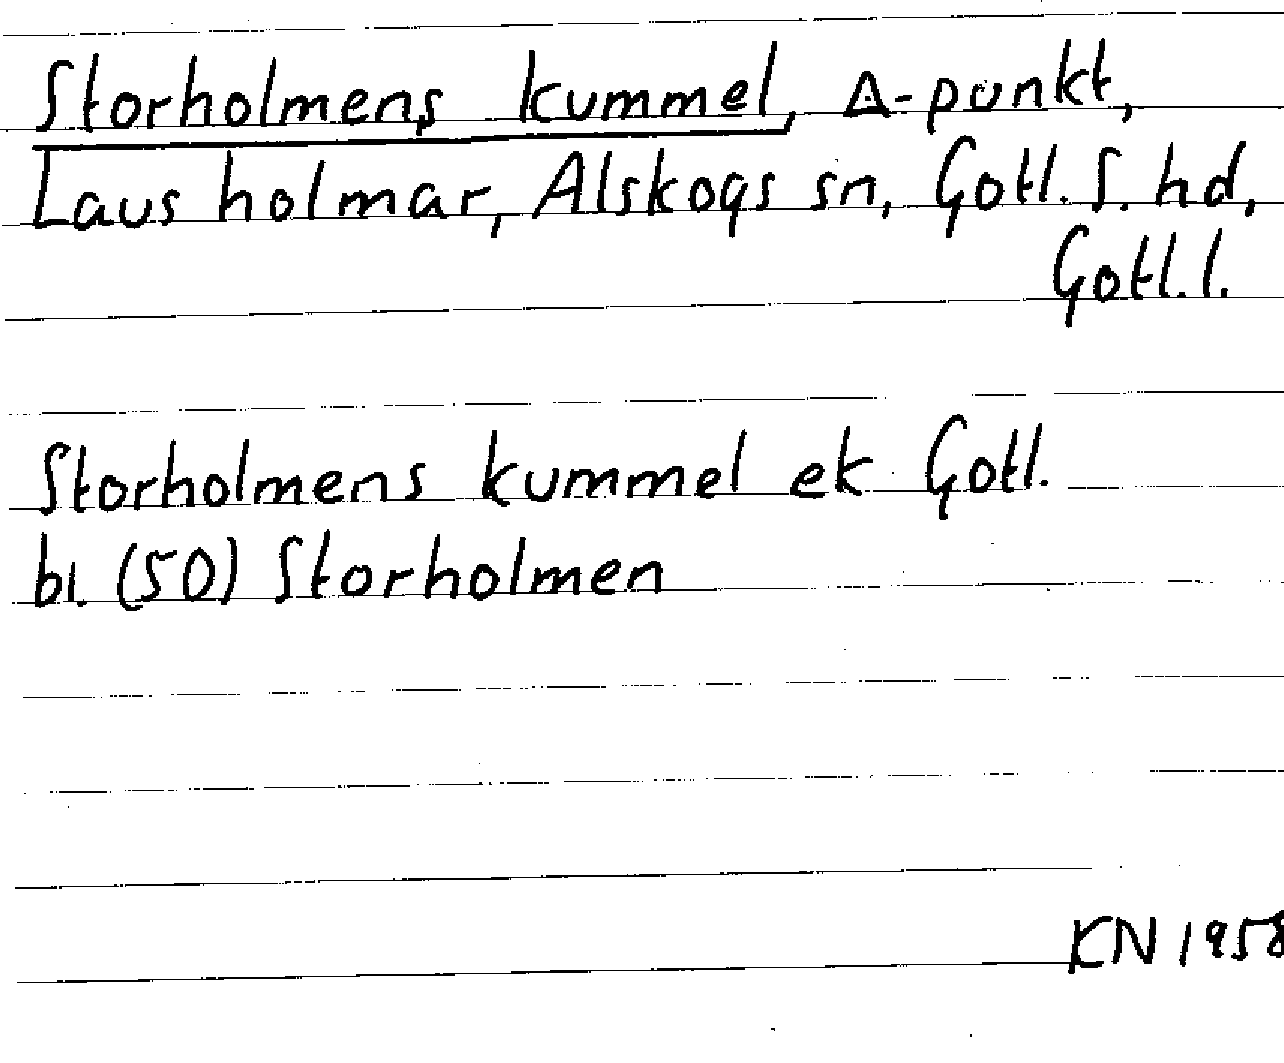 Storholmens kummel, Δ-punkt,
Laus holmar, Alskogs sn, Gotl. S. hd,
Gotl. l.
Storholmens kummel ek Gotl.
bl. (50) Storholmen
KN 1958